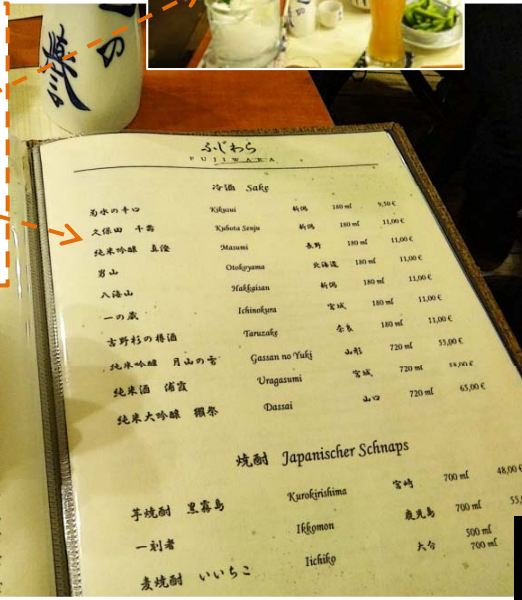 ふじわら
FUJIWARA
冷酒 Sake
菊水の辛口 Kikusui 新潟 180 ml 9,50 €
久保田 千壽 Kubota Senju 新潟 180 ml 11,00 €
純米吟醸 真澄 Masumi 長野 180 ml 11,00 €
男山 Otokoyama 北海道 180 ml 11,00 €
八海山 Hakkaisan 新潟 180 ml 11,00 €
一の蔵 Ichinokura 宮城 180 ml 11,00 €
吉野杉の樽酒 Taruzake 奈良 180 ml 11,00 €
純米吟醸 月山の雪 Gassan no Yuki 山形 720 ml 55,00 €
純米酒 浦霞 Uragasumi 宮城 720 ml
純米大吟醸 獺祭 Dassai 山口 720 ml 65,00 €
焼酎 Japanischer Schnaps
芋焼酎 黒霧島 Kurokirishima 宮崎 700 ml 48,00 €
一刻者 Ikkomon 鹿児島 700 ml
麦焼酎 いいちこ Iichiko 大分 500 ml
700 ml